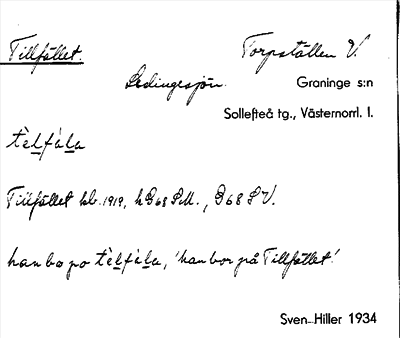 Tillfället. Torpställen V.
Ledingesjön. Graninge s:n
Sollefteå tg., Västernorrl. l.
tèlfàla
Tillfället hb. 1919, h D68 SM., D68 SV.
han bo po tèlfàla, 'han bor på Tillfället'.
Sven Hiller 1934